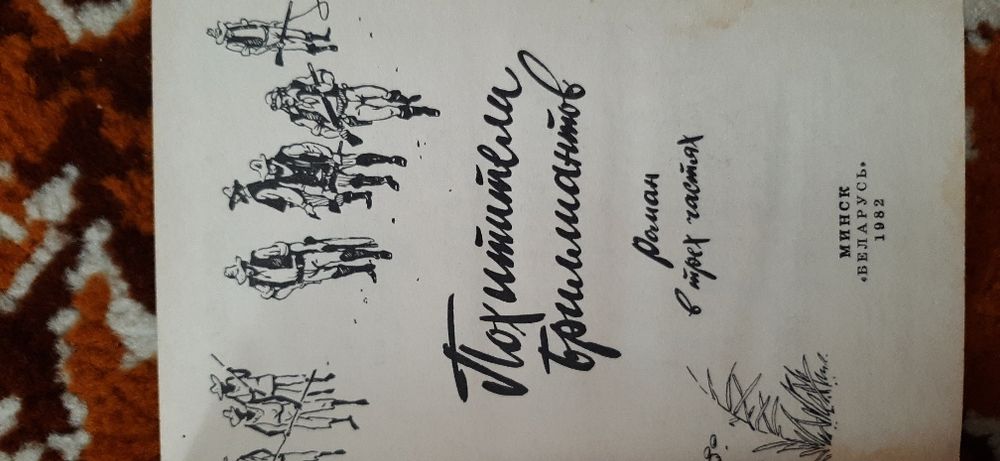 Похитители
бриллиантов
Роман
в трех частях
МИНСК
«БЕЛАРУСЬ»
1982